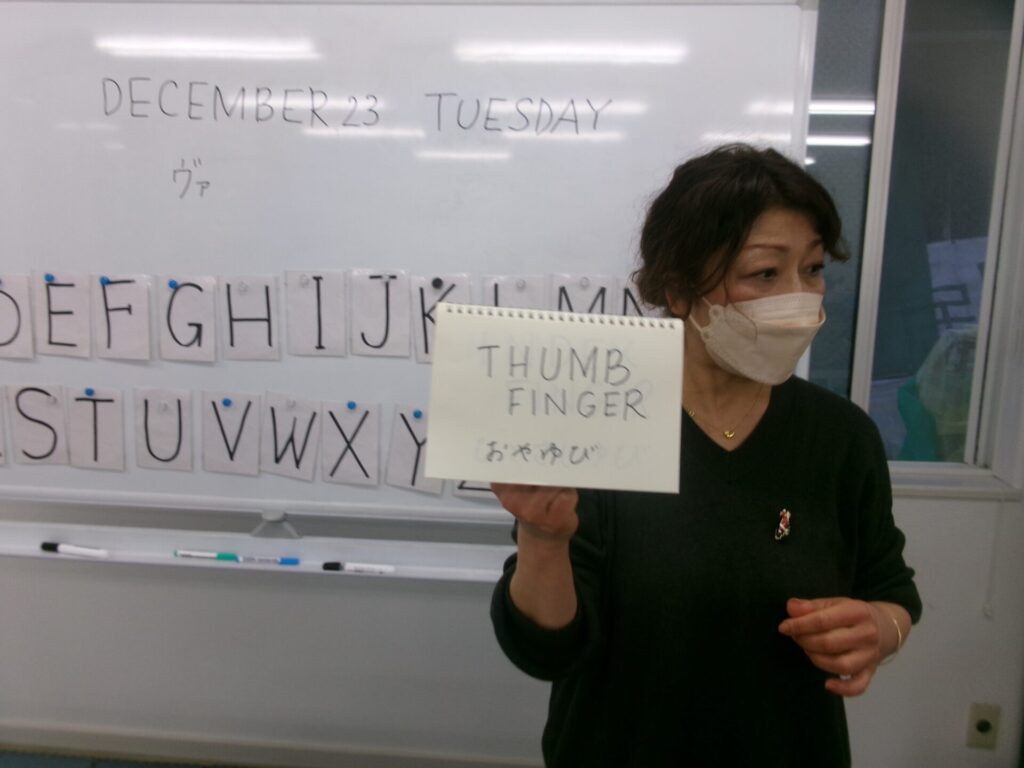 DECEMBER 23 TUESDAY
ヴァ
D E F G H I J K L M N
S T U V W X Y Z
THUMB
FINGER
おやゆび